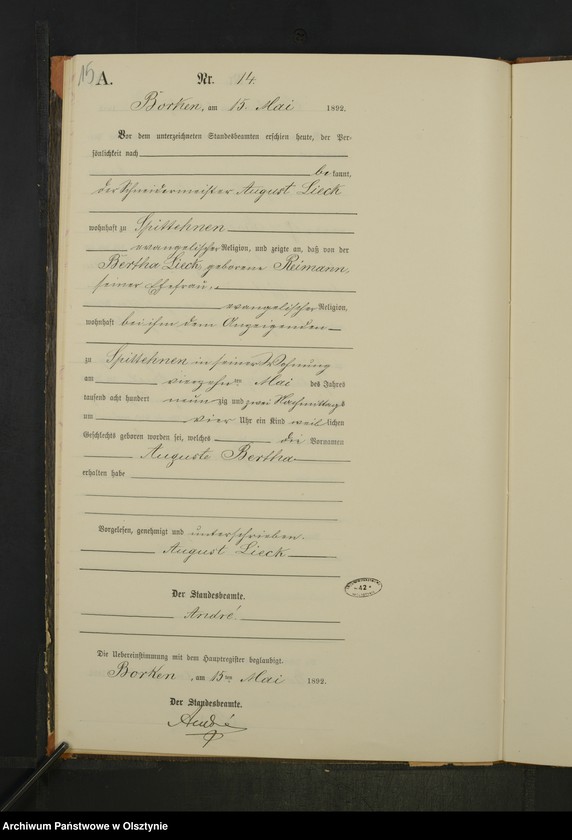 15 A. Nr. 14.
Borken, am 15. Mai 1892.
Vor dem unterzeichneten Standesbeamten erschien heute, der Per-
sönlichkeit nach
bekannt,
der Schneidermeister August Lieck
wohnhaft zu Spittehnen
evangelischer Religion, und zeigte an, daß von der
Bertha Lieck geborene Reimann,
seiner Ehefrau,
evangelischer Religion,
wohnhaft bei ihm dem Anzeigenden
zu Spittehnen in seiner Wohnung
am vierzehnten Mai des Jahres
tausend acht hundert neunzig und zwei Nachmittags
um vier Uhr ein Kind weiblichen
Geschlechts geboren worden sei, welches die Vornamen
Auguste Bertha
erhalten habe
Vorgelesen, genehmigt und unterschrieben.
August Lieck
Der Standesbeamte.
André
Die Uebereinstimmung mit dem Hauptregister beglaubigt.
Borken, am 15ten Mai 1892.
Der Standesbeamte.
André
-42-
Archiwum Państwowe w Olsztynie